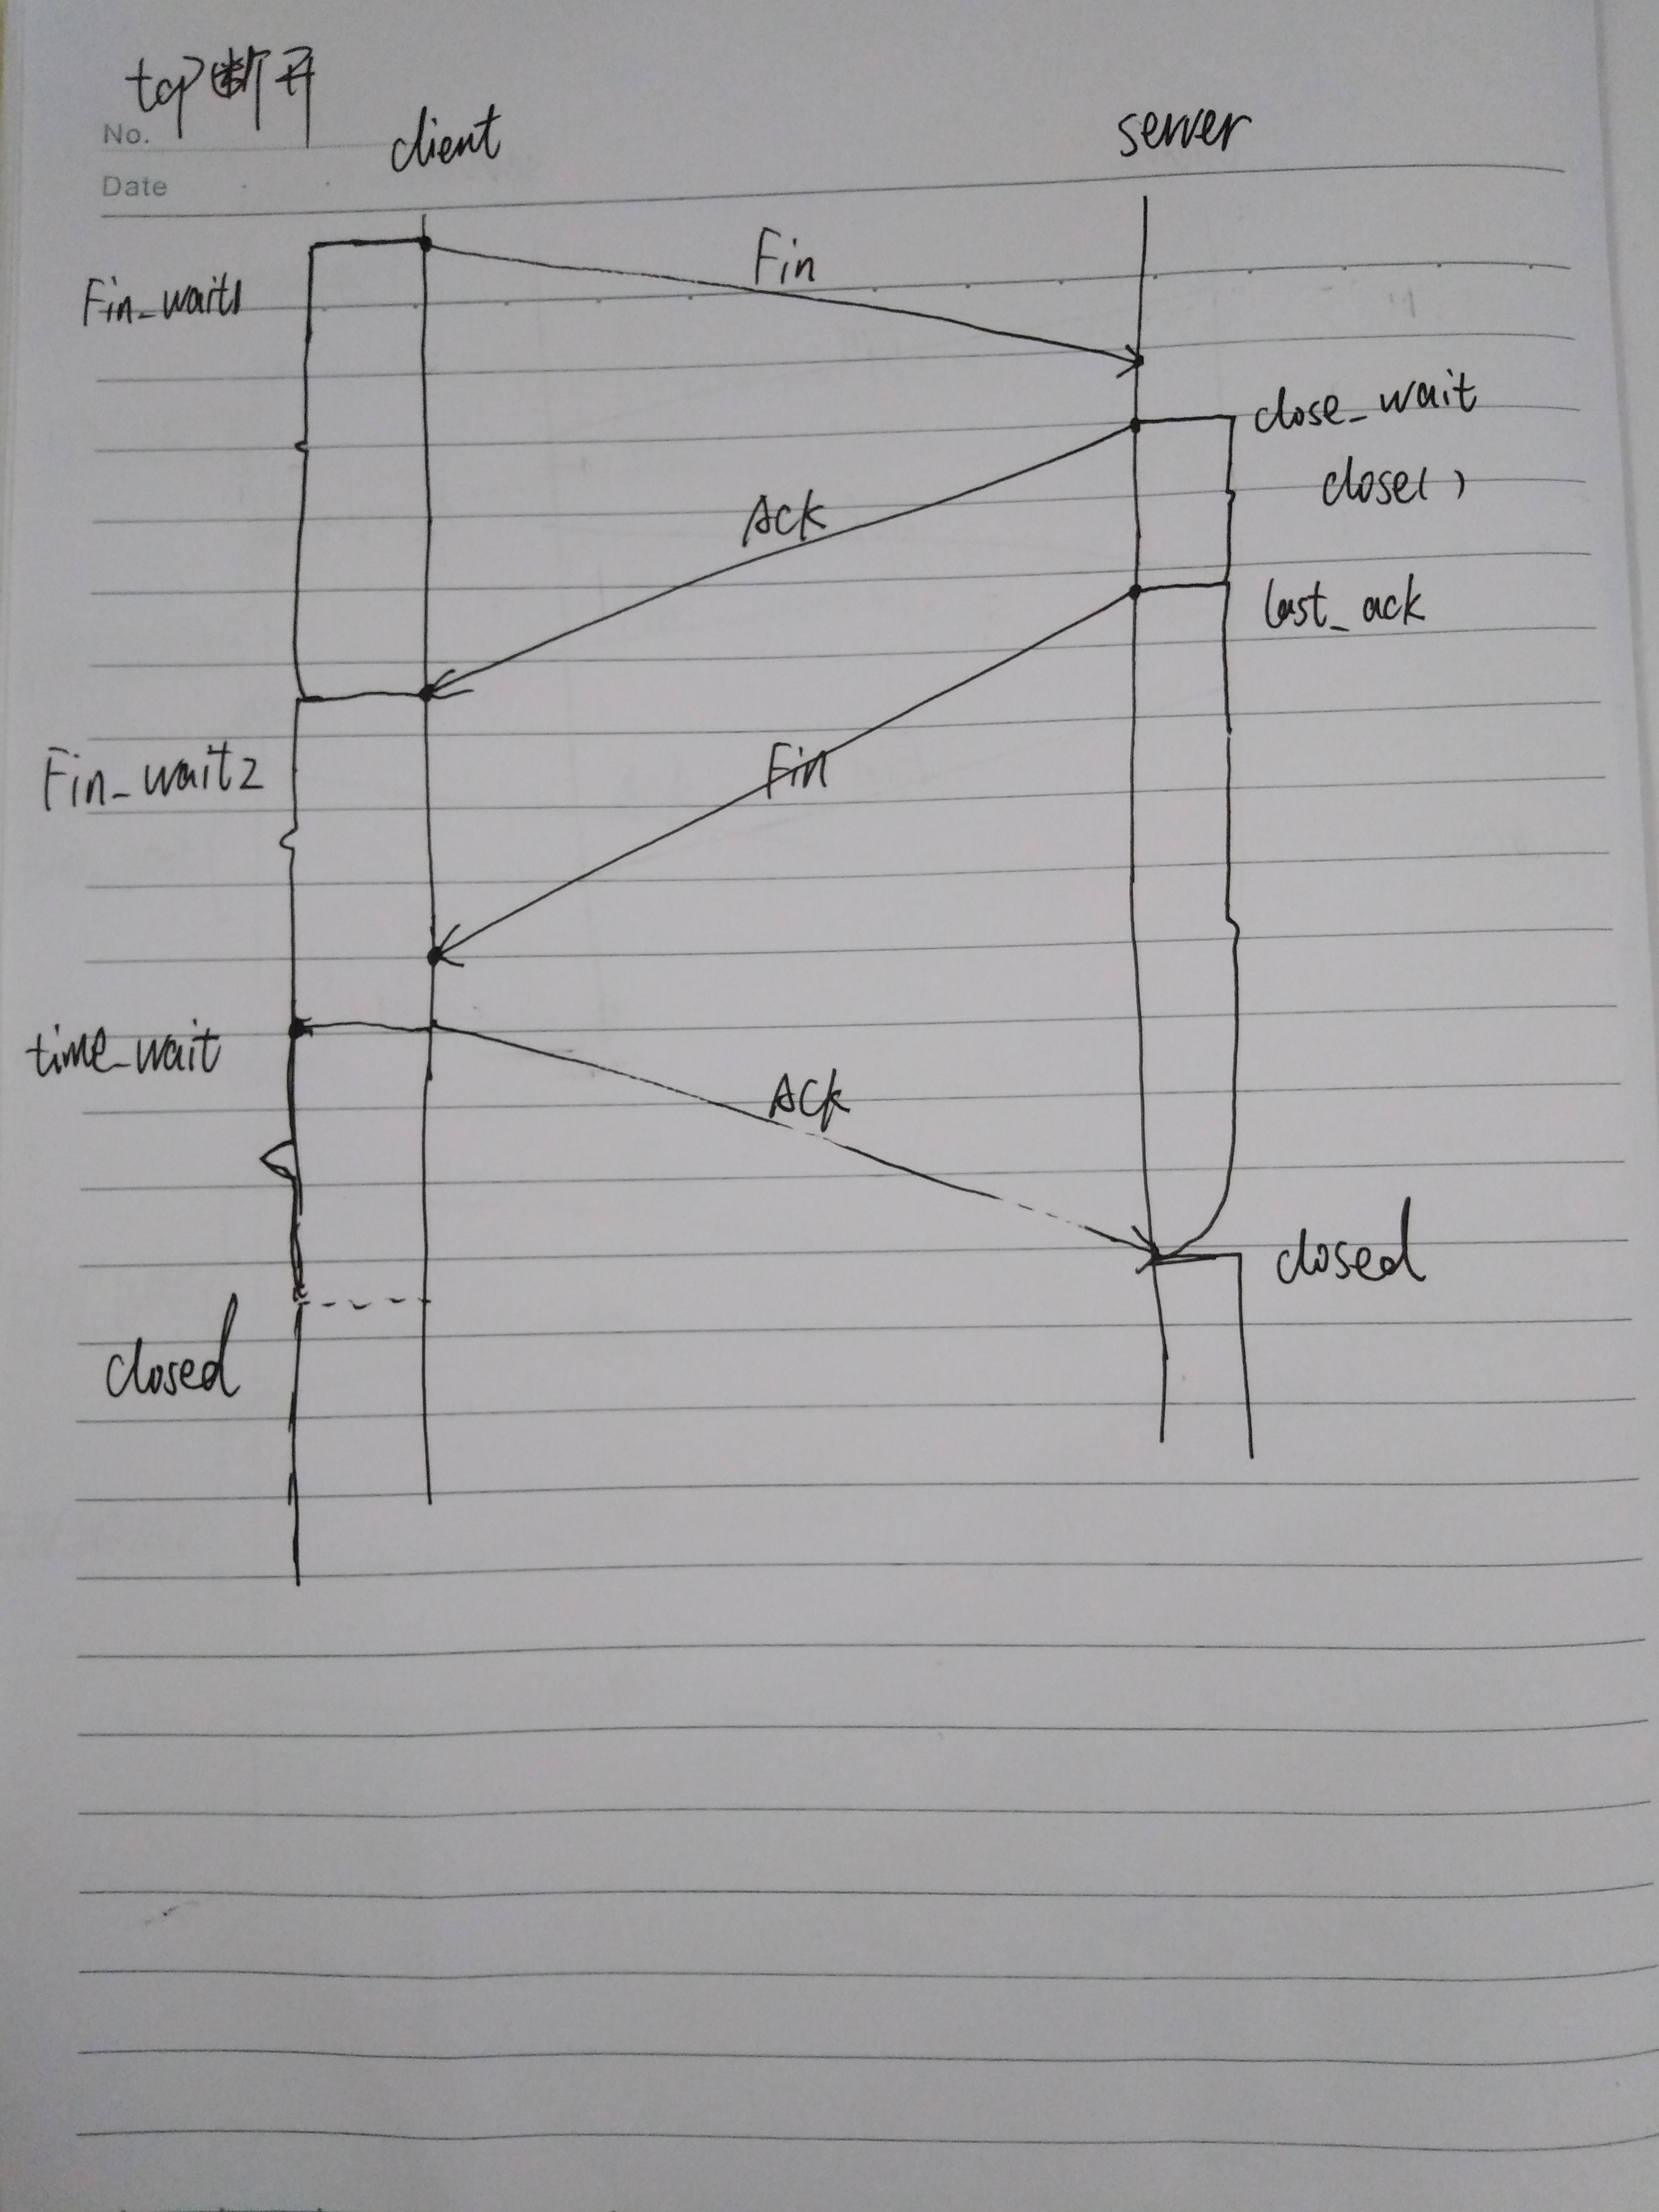 tcp断开
No.
Date
client
server
Fin
Fin_wait1
close_wait
close()
Ack
last_ack
Fin_wait2
Fin
time_wait
Ack
closed
closed